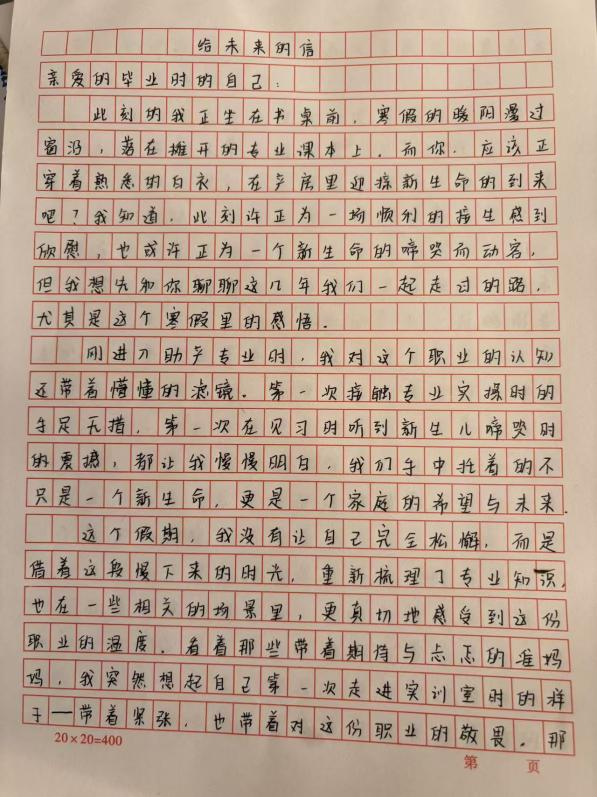 给未来的信
亲爱的毕业时的自己：
此刻的我正坐在书桌前，寒假的暖阳漫过
窗沿，落在摊开的专业课本上。而你，应该正
穿着熟悉的白衣，在产房里迎接新生命的到来
吧？我知道，此刻许正为一场顺利的接生感到
欣慰，也或许正为一个新生命的啼哭而动容，
但我想先和你聊聊这几年我们一起走过的路，
尤其是这个寒假里的感悟。
刚进入助产专业时，我对这个职业的认知
还带着懵懂的滤镜。第一次接触专业实操时的
手足无措，第一次在见习时听到新生儿啼哭时
的震撼，都让我慢慢明白，我们手中托着的不
只是一个新生命，更是一个家庭的希望与未来.
这个假期，我没有让自己完全松懈，而是
借着这段慢下来的时光，重新梳理了专业知识，
也在一些相关的场景里，更真切地感受到这份
职业的温度。看着那些带着期待与忐忑的准妈
妈，我突然想起自己第一次走进实训室时的样
子—带着紧张，也带着对这份职业的敬畏。那
20×20=400
第 页